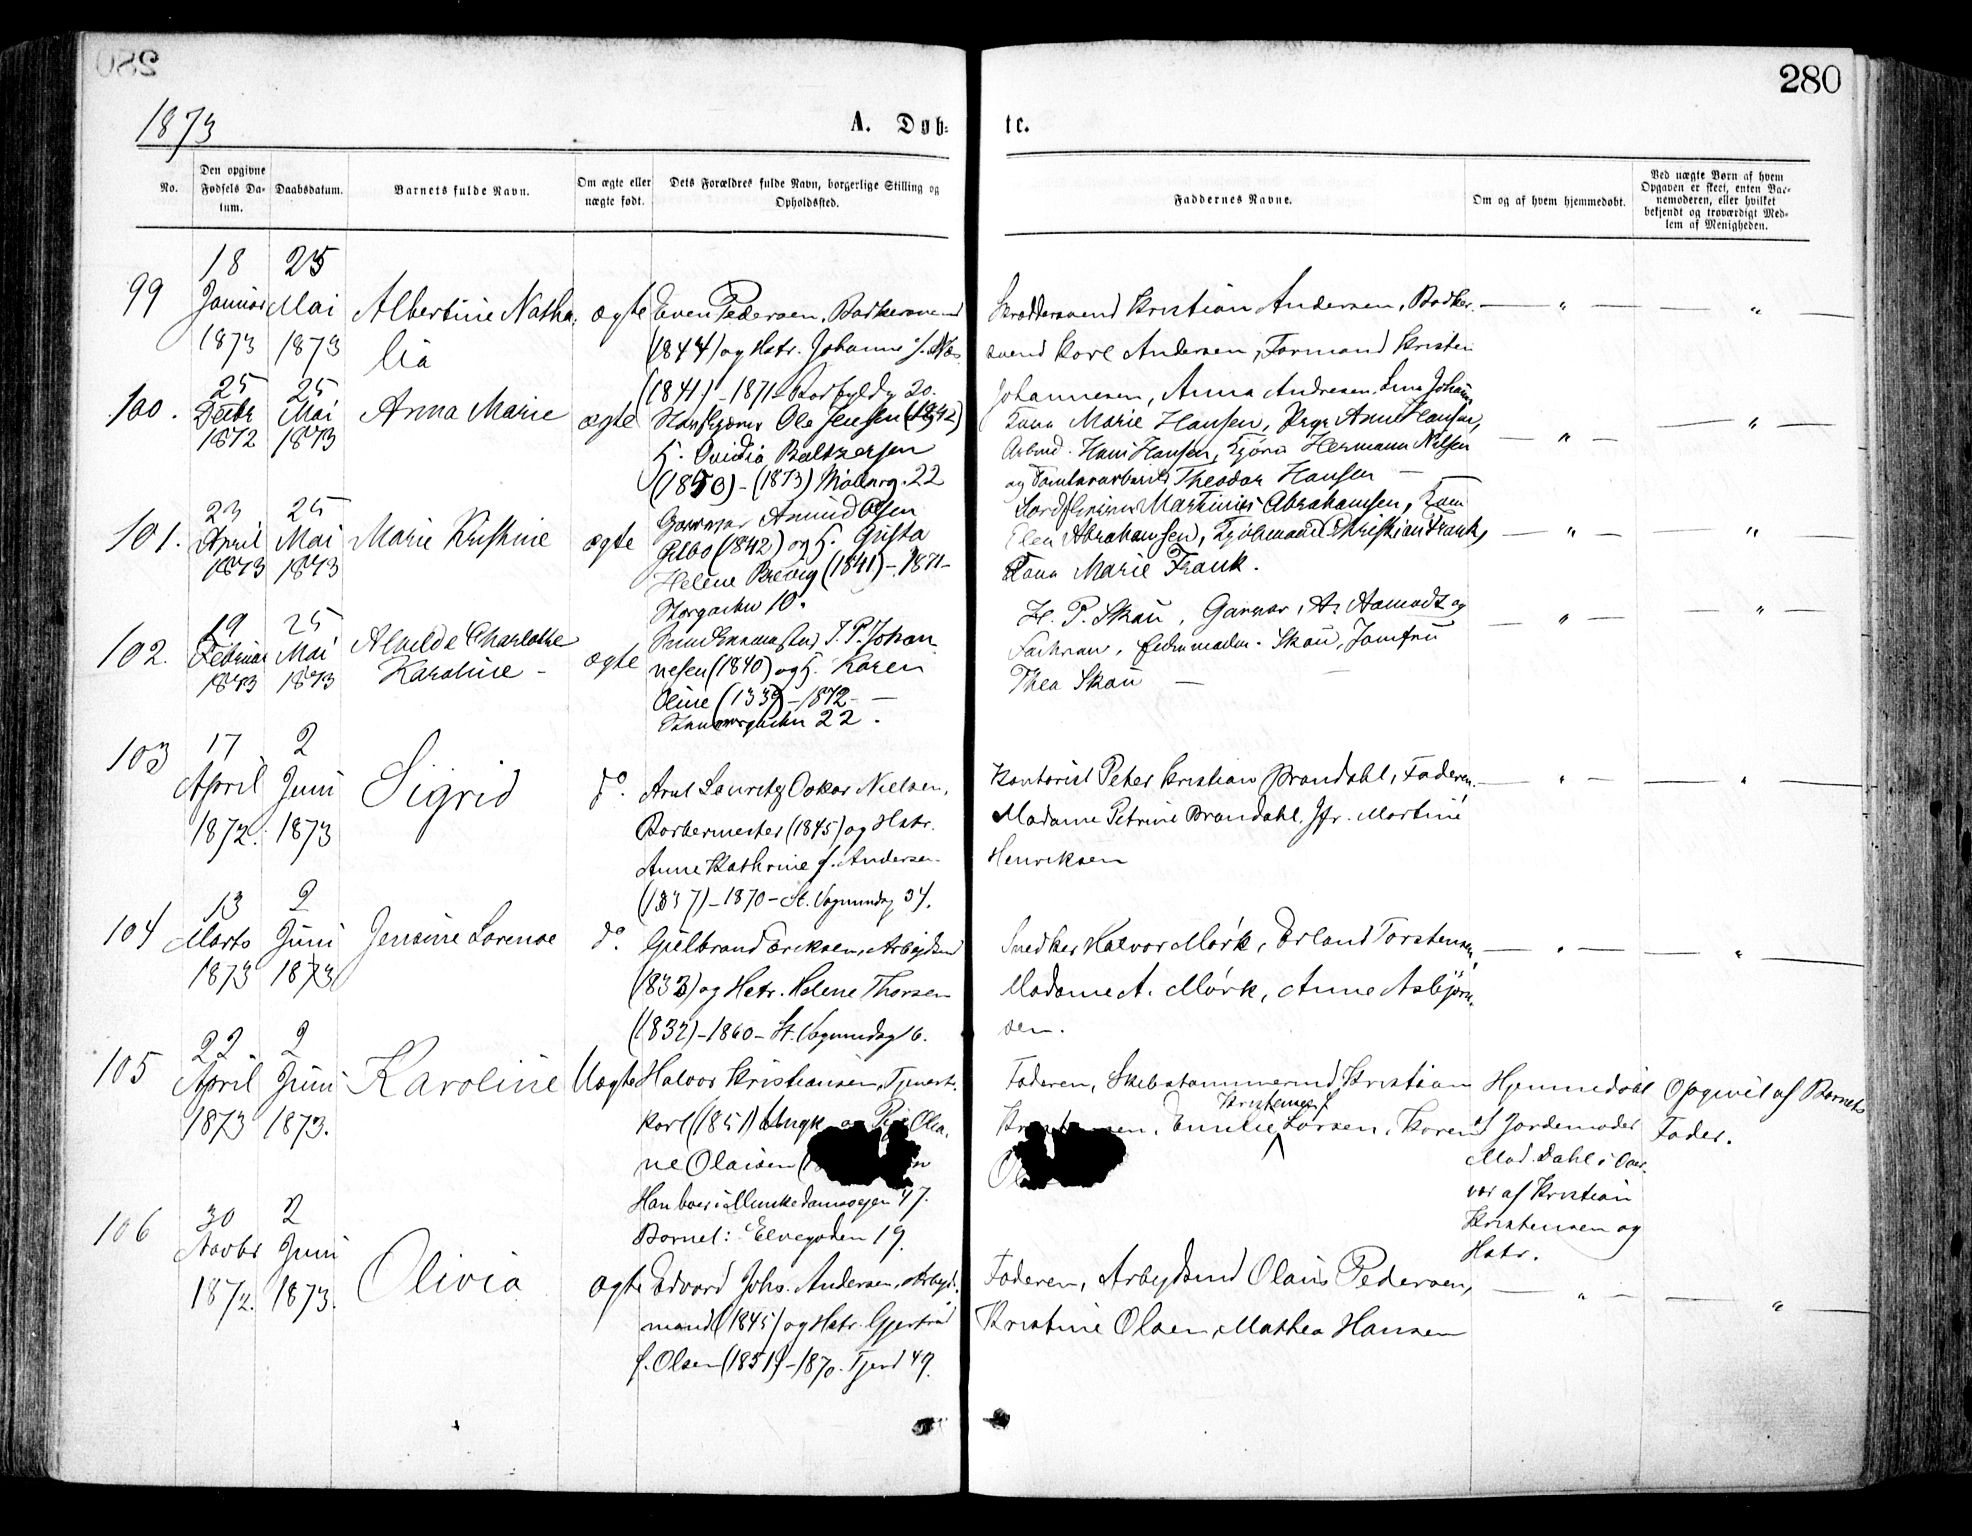 280
1873
A. Døb-
te.
No.
Den opgivne Fødsels Da-tum.
Daabsdatum.
Barnets fulde Navn.
Om ægte eller uægte født.
Dets Forældres fulde Navn, borgerlige Stilling og Opholdssted.
Faddernes Navne.
Om og af hvem hjemmedøbt.
Ved uægte Børn af hvem Opgaven er skeet, enten Bar-nemoderen, eller hvilket bekjendt og troværdigt Med-lem af Menigheden.
99
18 Januar 1873
25 Mai 1873
Albertine Natha-
lia
ægte
Even Pedersen, Bødkersvend
(1844) og Hstr. Johanne f.
(1841) - 1871
Skræddersvend Kristian Andersen, Bødker-
svend Karl Andersen, Formand Kristen
Johannesen, Anna Andresen, Lina
100.
25 Decbr 1872
25 Mai 1873
Anna Marie
ægte
Ole Jensen (1842)
H. Ovidia Baltzersen
(1850) - (1873) Møllerg. 22
Kone Marie Hansen, Pige Anne Hansen,
Arbmd. Hans Hansen, Hermann Nilsen
og Theodor Hansen
101.
23 April 1873
25 Mai 1873
Marie Kristine
ægte
Garver Amund Olsen
(1842) og H. Gusta
Helene Brevig (1841) - 1871 -
Storgaden 10.
Martinius Abrahamsen, Kone
Elen Abrahamsen, Kjøbmand Christian Frank,
Kone Marie Frank.
102.
19 Februar 1873
25 Mai 1873
Alvilde Charlotte
Karoline -
ægte
J. P. Johan
nesen (1840) og H. Karen
Oline (1839) - 1872 -
22.
H. P. Skau, Garver, A. Aamodt og
Skau, Jomfru
Thea Skau
103
17 April 1872.
2 Juni 1873
Sigrid
do.
Arnt Lauritz Oskar Nielsen,
Barbermester (1845) og Hstr.
Anne Kathrine f. Andersen
(1837) - 1870 - St. Vognmdsg 34.
Kontorist Peter Kristian Brandahl, Faderen,
Madame Petrine Brandahl, Jfr. Martine
Henriksen
104
13 Marts 1873
2 Juni 1873
Jensine Lorense
do.
Gulbrand Eriksen, Arbejdsmd
(1833) og Hstr. Helene Thorsen
(1832) - 1860 - St. Vognmdsg 16.
Snedker Halvor Mørk, Erland Torstensen,
Madame A. Mørk, Anne Asbjørn-
sen.
105
22 April 1873
2 Juni 1873.
Karoline
Uægte
Halvor Kristiansen, Tjeneste-
karl (1851) Ungk. og Pige Olea-
ne Olaisen
Han boer i Munkedamsveien 47.
Barnet: Elvegaden 19.
Faderen, Skibstømmermd. Kristian
Kristensen, Emilie Larsen, Karen
Hjemmedøbt
af Jordemoder
Mad. Dahl i Over-
vær af Kristian
Kristensen og
Hstr.
Opgivet af Barnets
Fader.
106
30 Novbr 1872.
2 Juni 1873.
Olivia
ægte
Edvard Johs. Andersen, Arbejds-
mand (1845) og Hstr. Gjertrud
f. Olsen (1851) - 1870. Tjerd 49.
Faderen, Arbejdsmd Olaus Pedersen,
Kristine Olsen, Mathea Hansen